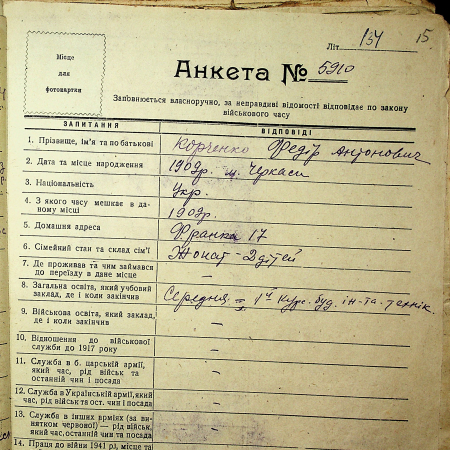 Літ. 134 15.
Місце
для
фотокартки
Анкета № 5910
Заповнюється власноручно, за неправдиві відомості відповідає по закону
військового часу
ЗАПИТАННЯ ВІДПОВІДІ
1. Прізвище, ім'я та по батькові Корченко Федір Антонович
2. Дата та місце народження 1909р. м. Черкаси
3. Національність Укр.
4. З якого часу мешкає в да-
ному місці 1909р.
5. Домашня адреса Франка 17
6. Сімейний стан та склад сім'ї Жонат - 2 дітей
7. Де проживав та чим займався
до переїзду в дане місце —
8. Загальна освіта, який учбовий
заклад, де і коли закінчив Середня = 1й курс. буд. ін-та. технік.
9. Військова освіта, який заклад,
де і коли закінчив —
10. Відношення до військової
служби до 1917 року —
11. Служба в б. царській армії,
який час, рід військ та
останній чин і посада —
12. Служба в Українській армії, який
час, рід військ та ост. чин і посада —
13. Служба в інших арміях (за ви-
нятком червоної) — рід військ,
який час, останній чин та посада —
14. Праця до війни 1941 рд, місце та